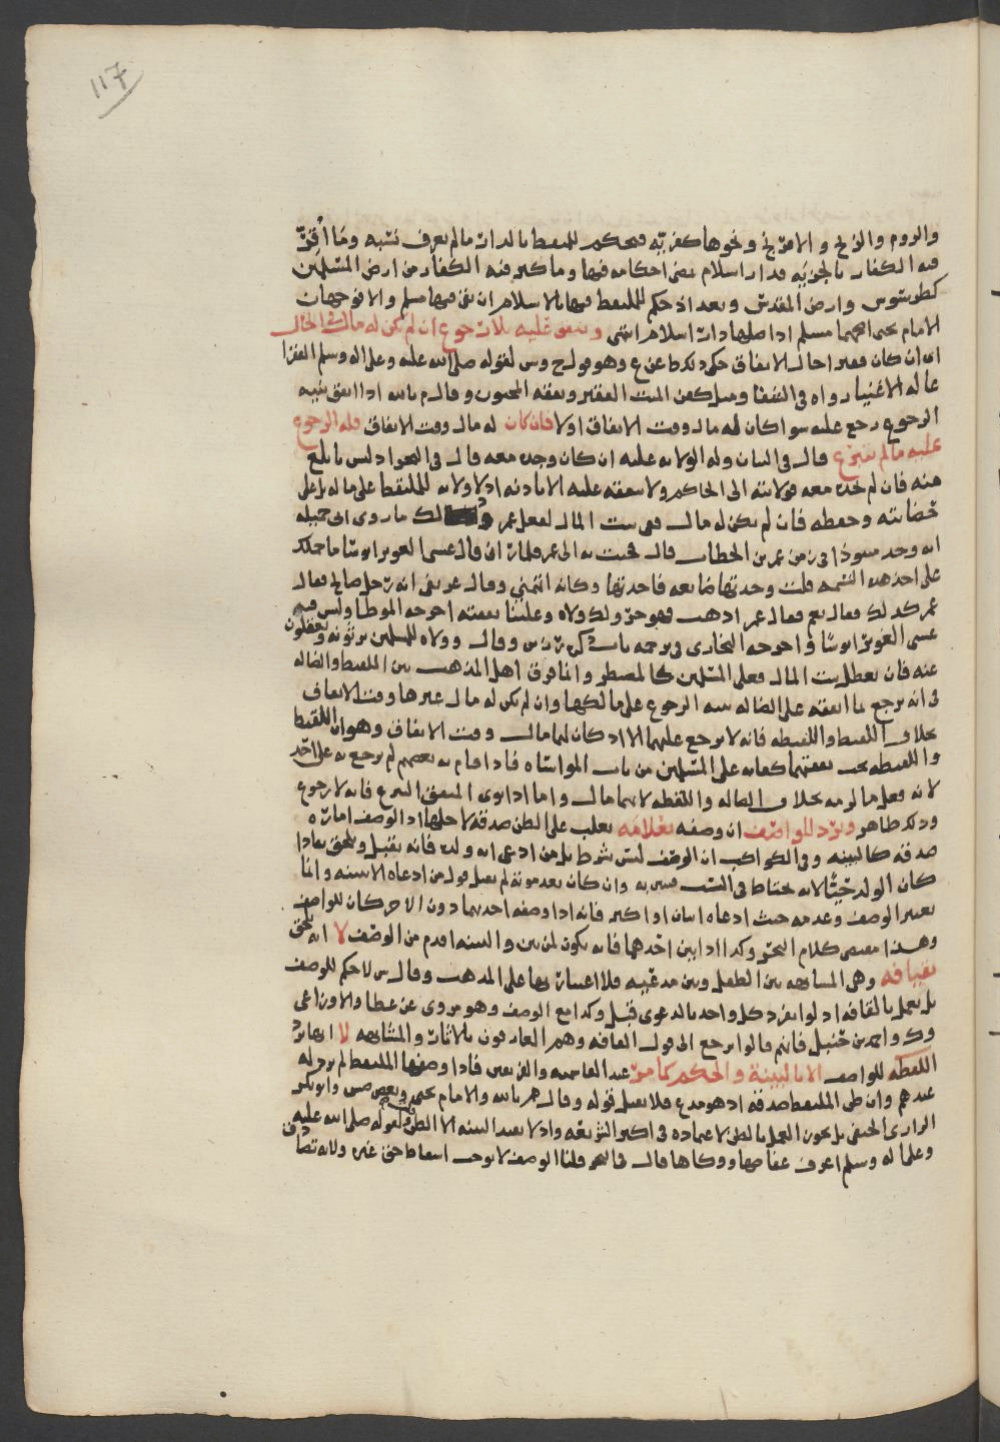 117
والروم والزنج والافرنج ونحوها كفريه فيحكم للملتقط بالدار ما لم يعرف نسبه وما أقرّ
فيه الكفار بالجزيه فدار اسلام لمضي احكامه فيها وما كثر فيه الكفار من ارض المسلمين
كطرسوس وارض المقدس وبغداد حكم للملتقط فيها بالاسلام ان بقي فيها مسلم والا فوجهان
الامام يحيى اصحهما مسلم اذ اصلها دار اسلام انتهى وينفق عليه بلا رجوع ان لم يكن له مال في الحال
اي ان كان فقير احال الانفاق حكى ذلك عن ع وهو قول ح وس لقوله صلى الله عليه وعلى اله وسلم الفقرا
عالة الاغنيا رواه في الشفا ومثل كفن الميت الفقير ونفقه المجنون وقال م بالله اذا انفق بنيه
الرجوع رجع عليه سوا كان له مال وقت الانفاق اولا فان كان له مال وقت الانفاق فله الرجوع
عليه ما لم يتبرع قال في البيان وله الولايه عليه ان كان وجد معه قال في البحر اذ ليس بابلغ
منه فان لم يجد معه فولايته الى الحاكم ولا ينفقه عليه الا باذنه اذ لا ولايه للملتقط على ماله بل على
حضانته وحفظه فان لم يكن له مال ففي بيت المال لفعل عمر وذلك ما روى ابي جميله
انه وجد منبوذا في زمن عمر بن الخطاب قال فجئت به الى عمر فلما راني قال عسى الغوير ابوسا ما حملك
على اخذ هذه النسمه قلت وجدتها ضايعه فاخذتها وكانه اتهمني وقال عريفي انه رجل صالح فقال
عمر كذلك فقال نعم فقال عمر اذهب فهو حر ولك ولاه وعلينا نفقته اخرجه الموطا وليس فيه
عسى الغوير ابوسا واخرجه البخاري في ترجمه باب وقال وولاه للمسلمين يرثونه ويعقلون
عنه فان تعطل بيت المال فعلى المسلمين كالمضطر وانما فرق اهل المذهب بين اللقيط والضاله
في انه يرجع بما انفقه على الضاله بنيه الرجوع على مالكها وان لم يكن له مال غيرها وقت الانفاق
بخلاف اللقيط واللقيطه فانه لا يرجع عليهما الا اذ كان لهما مال وقت الانفاق وهو ان اللقيط
واللقيطه يجب نفقتهما كفايه على المسلمين من باب المواساه فاذا قام به بعضهم لم يرجع به على احد
لانه فعل ما لزمه بخلاف الضاله واللقطه لانهما مال واما اذا نوى المنفق التبرع فانه لا رجوع
وذلك ظاهر ويرد للواصف ان وصفه بعلامه يغلب على الظن صدقه لاجلها اذ الوصف اماره
صدقه كالبينه وفي الكواكب ان الوصف ليس شرط بل من ادعى انه ولده فانه يقبل ويلحق به اذا
كان الولد حيّا لانه يحتاط في النسب وان كان بعد موته لم يقبل قول من ادعاه الا ببينه وانما
يعتبر الوصف وعدمه حيث ادعاه اثنان او اكثر فانه اذا وصفه احدهما دون الاخر كان للواصف
وهذا مقتضى كلام البحر وكذا اذا بين احدهما فانه يكون لمن بين والبينه اقدم من الوصف لا انه يلحق
بقيافه وهي المشابهه بين الطفل وبين مدعيه فلا اعتبار بها على المذهب وقال س لا حكم للوصف
بل يعمل بالقافه اذ لو انفرد كل واحد بالدعوى قبل وكذا مع الوصف وهو مروي عن عطا والاوزاعي
وك واحمد بن حنبل فانهم قالوا يرجع الى قول القافه وهم العارفون بالاثار والمشابهه لا انها ترد
اللقطه للواصف الا بالبينة والحكم كما مر عند القاسميه والفريقين فاذا وصفها الملتقط لم يرد له
عندهم وان ظن الملتقط صدقه اذ هو مدع فلا يقبل قوله وقال م بالله والامام يحيى وبعض صش وابو بكر
الرازي الحنفي بل يجوز العمل بالظن لاعتماده في اكثر الشريعه واذ لا يفيد البينه الا الظن ولقوله صلى الله عليه
وعلى اله وسلم اعرف عفاصها ووكاها قال في البحر قلنا الوصف لا يوجب اسقاط حق غيره ولانه تصادق